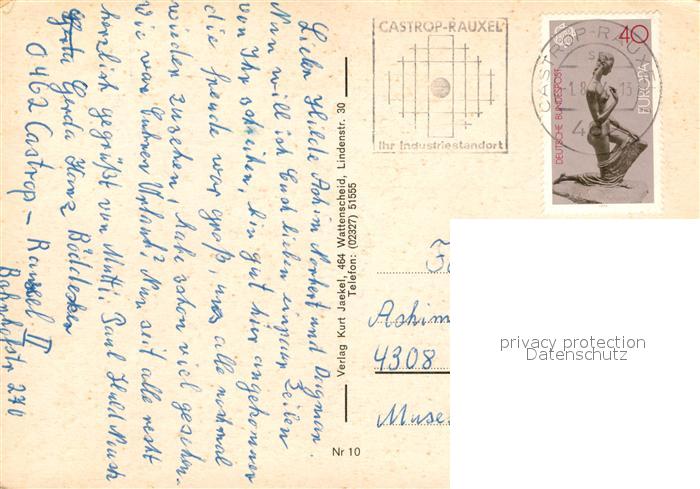 Liebe Hilde Achim Norbert und Dagmar.
Nun will ich Euch lieben ein paar Zeilen
von Ihr schreiben, bin gut hier angekommen
die freude war groß, uns alle nochmal
wieder zusehen, habe schon viel gesehen.
Wie war Euer Urlaub? Nun seit alle recht
herzlich gegrüßt von Mutti. Paul
Gerda Heinz Böddeker
0462 Castrop-Rauxel II
Bahnhofstr 270
Verlag Kurt Jaekel, 464 Wattenscheid, Lindenstr. 30
Telefon: (02327) 51555
Nr 10
CASTROP-RAUXEL
Ihr Industriestandort
CASTROP-RAUX
40
DEUTSCHE BUNDESPOST
EUROPA
Achim
4308
privacy protection
Datenschutz